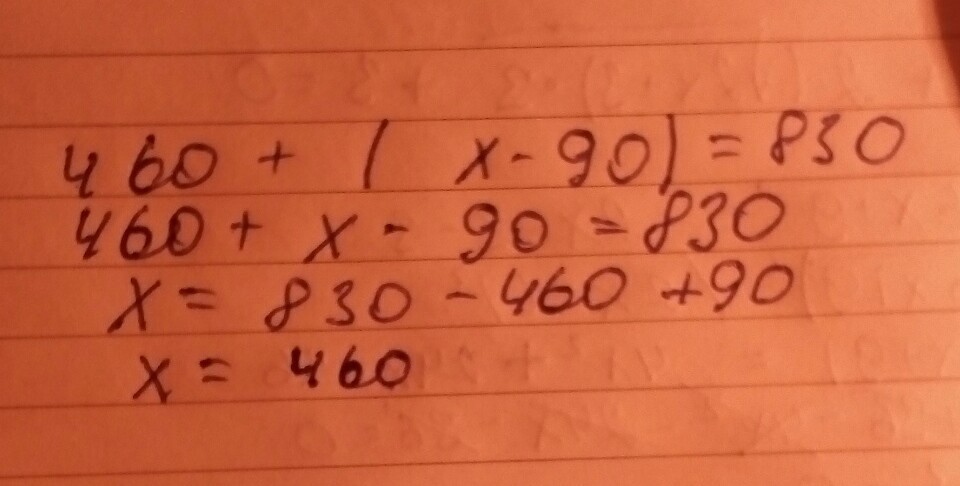 460 + ( x - 90) = 830
460 + x - 90 = 830
x = 830 - 460 + 90
x = 460